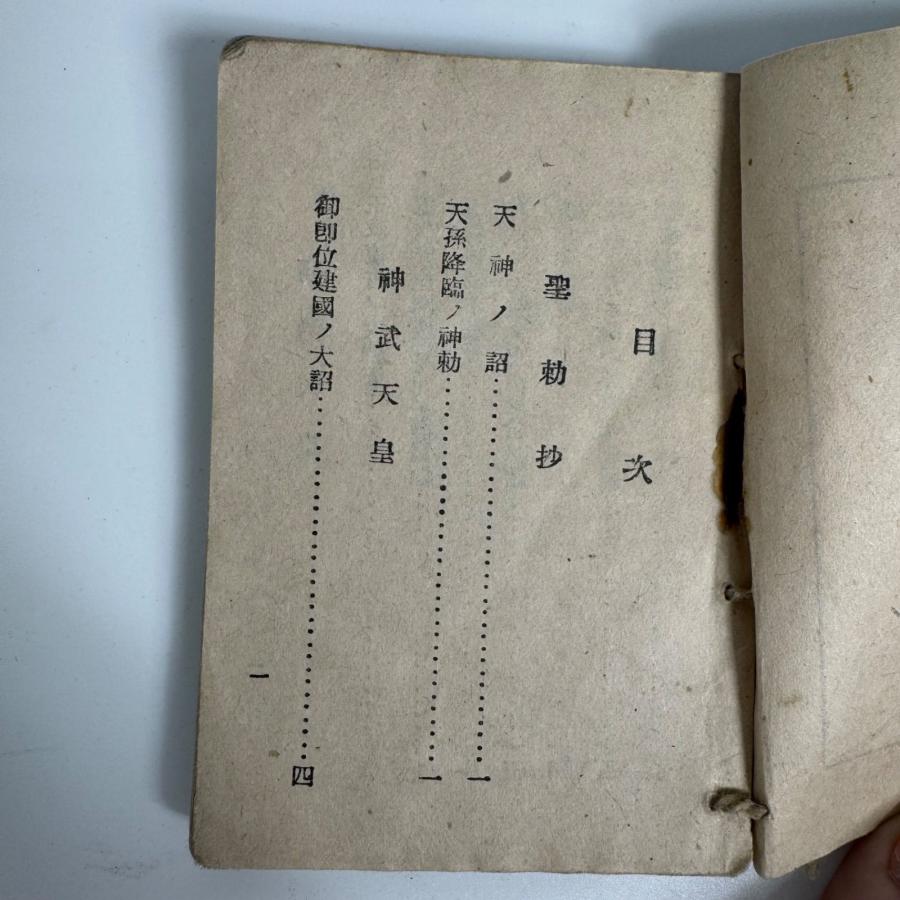 目次
聖勅抄
天神ノ詔……………………一
天孫降臨ノ神勅……………………一
神武天皇
御即位建國ノ大詔……………………四
一